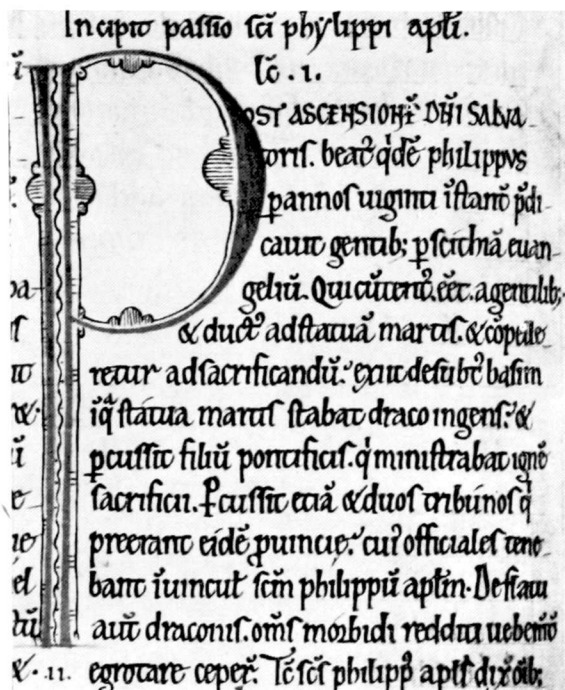 Incipit passio sci phylippi apli.
Lc̄ . 1.
POST ASCENSIONĒ DN̄I SALVA
toris. beatꝰ qͥdē philippus
ꝑ annos uiginti īstant̄ p̄di
cauit gentibꝫ ꝑ scithiā euan
geliū. Qui cū tentꝰ. eēt. a gentilibꝫ
& ductꝰ ad statuā martis. & cōpelle
retur ad sacrificandū. exiit de subtꝰ basim
ī qͣ statua martis stabat draco ingens. &
ꝑcussit filiū pontificis. qͥ ministrabat ignē
sacrificii. Ꝑcussit etiā & duos tribunos q̄
preerant eidē ꝓuincię. cuiꝰ officiales tene
bant ī uincul̄ scm̄ philippū aplm̄. De flatu
aut̄ draconis. om̄s morbidi redditi uehem̄t̄
. 11. egrotare ceper̄. Tc̄ scs̄ philippꝰ apls̄ dix̄ oībꝫ